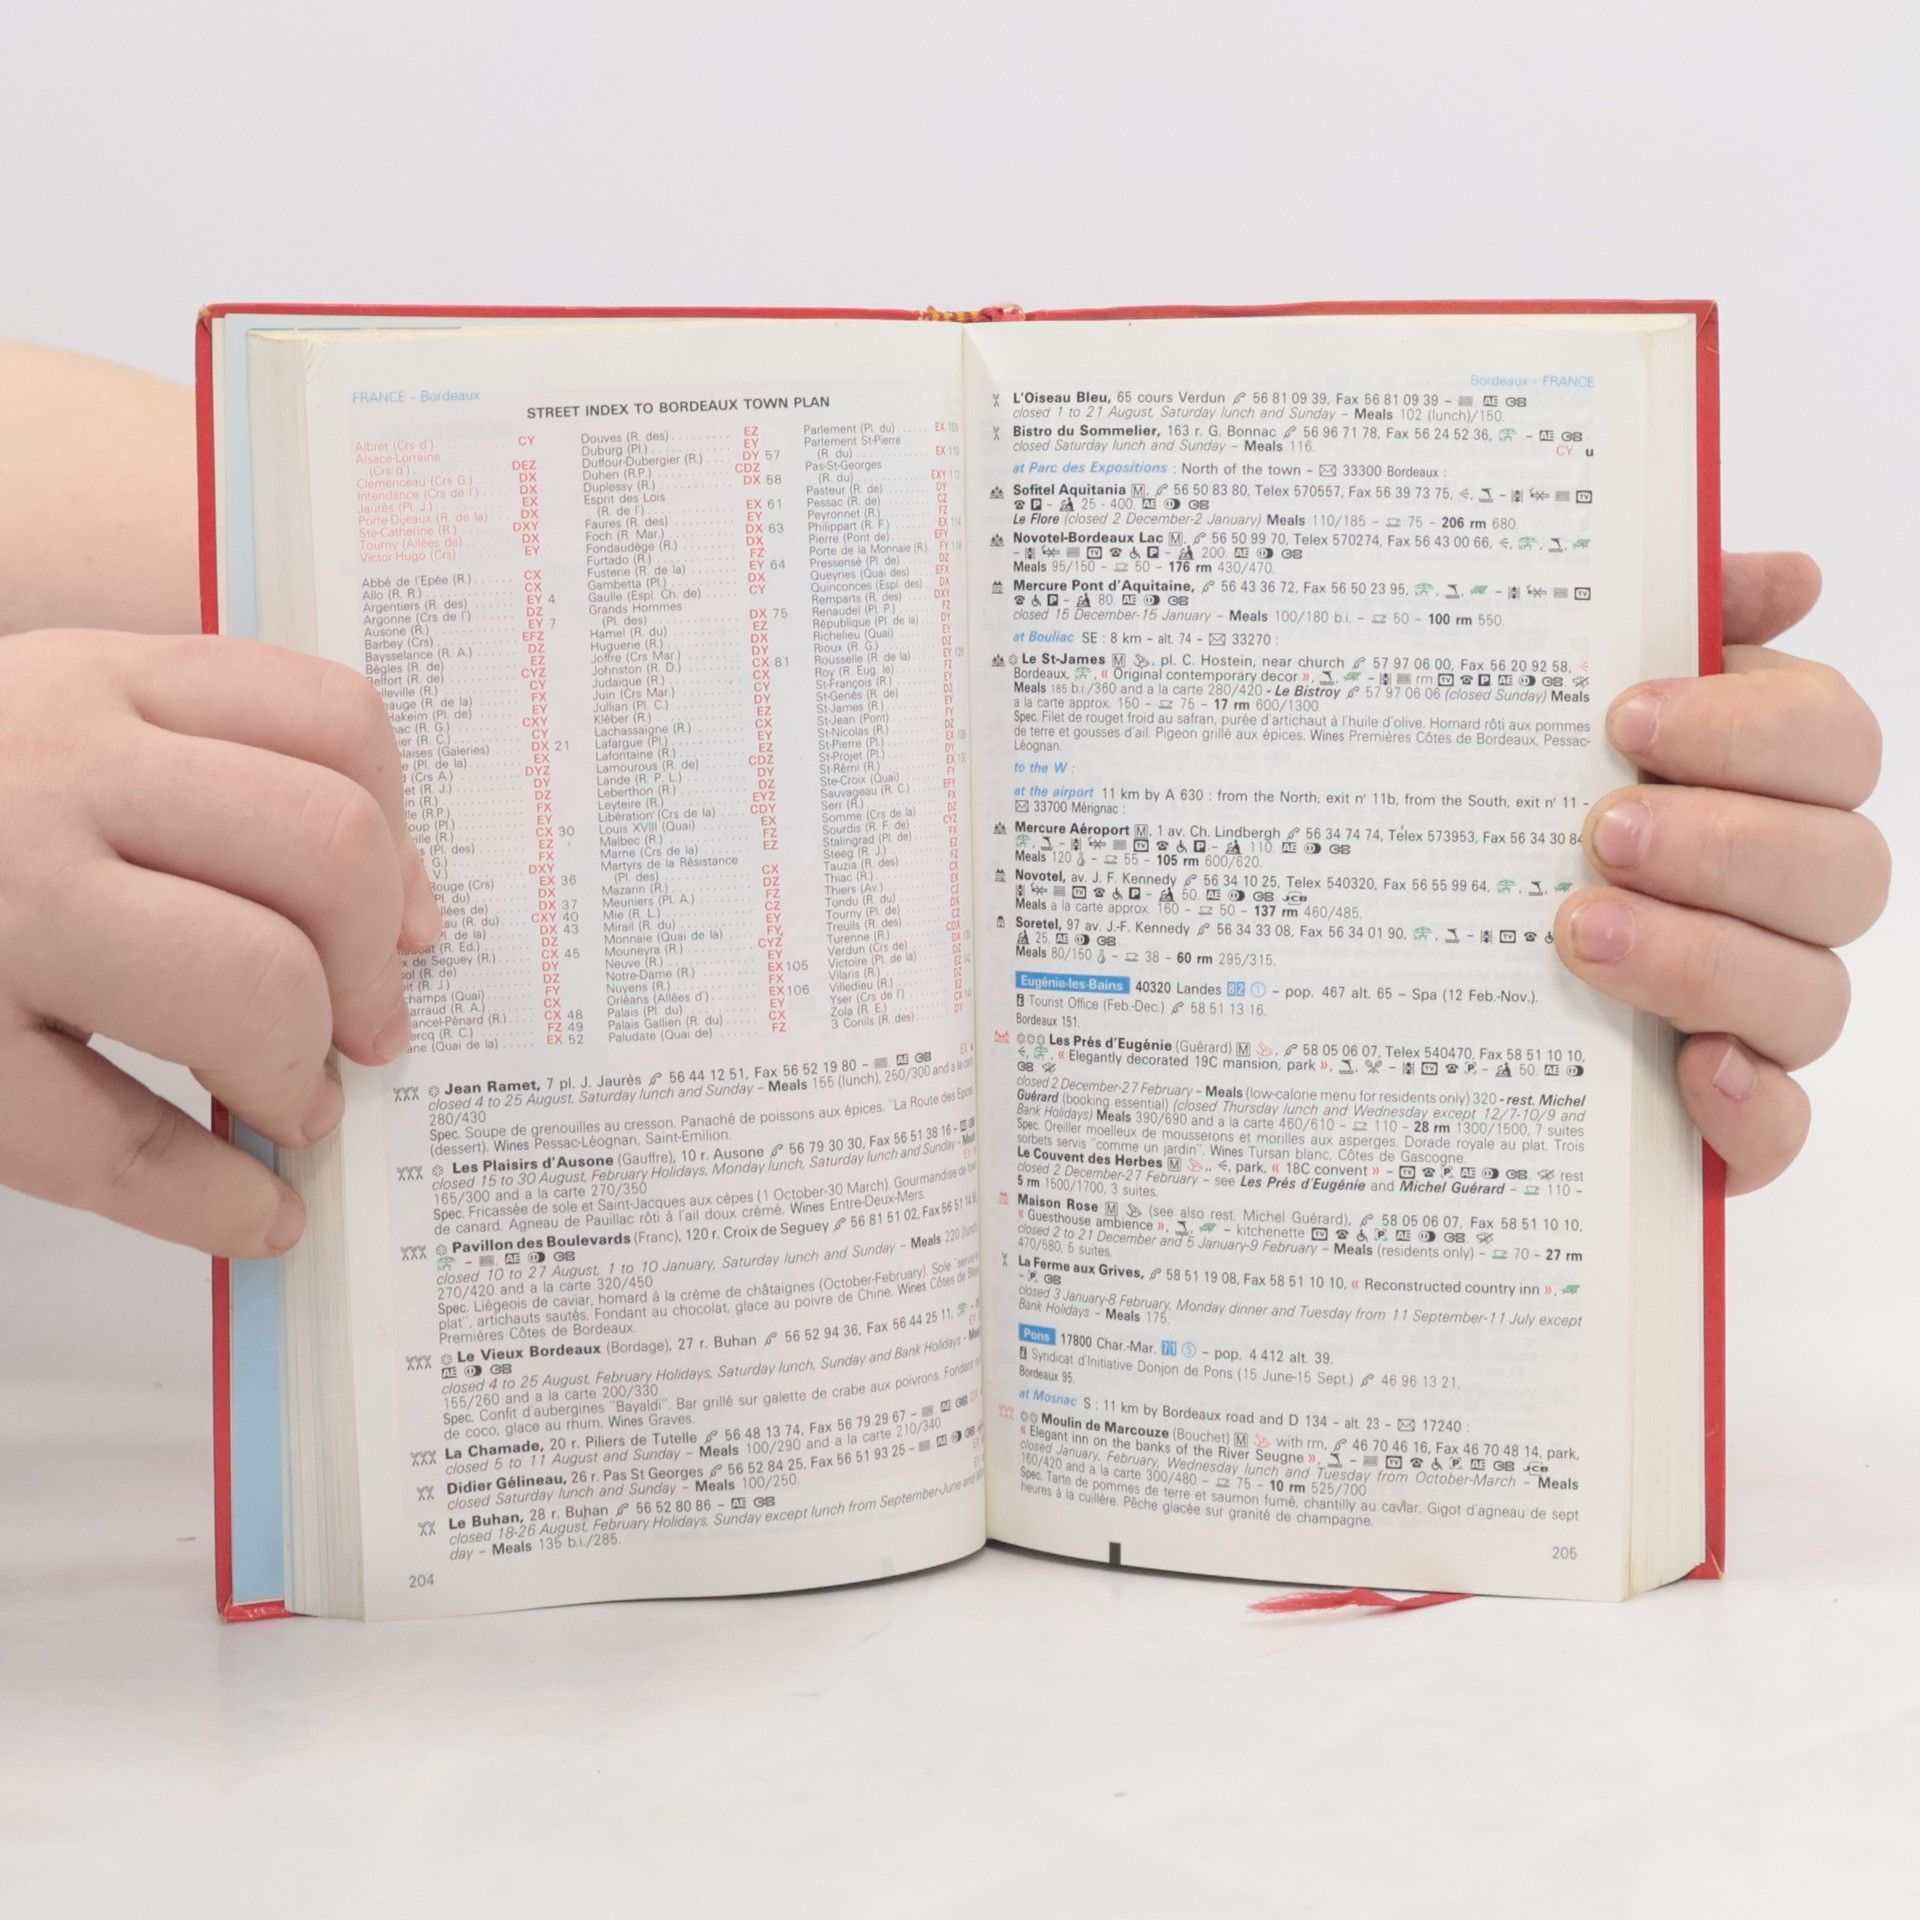 FRANCE - Bordeaux
STREET INDEX TO BORDEAUX TOWN PLAN
Albret (Crs d') CY
Alsace-Lorraine
(Crs d') DEZ
Clemenceau (Crs G.) DX
Intendance (Crs de l') DX
Jaurès (Pl. J.) EX
Porte-Dijeaux (R. de la) DX
Ste-Catherine (R.) DXY
Tourny (Allées de) DX
Victor-Hugo (Crs) EY
Abbé de l'Epée (R.) CX
Allo (R. R.) CX
Argentiers (R. des) EY 4
Argonne (Crs de l') DZ
Ausone (R.) EY 7
Barbey (Crs) EFZ
Baysselance (R. A.) DZ
Bègles (R. de) EZ
Belfort (R. de) CYZ
Douves (R. des) EZ
Duburg (Pl.) EY
Duffour-Dubergier (R.) DY 57
Duhen (R.P.) CDZ
Duplessy (R.) DX 58
Esprit des Lois
(R. de l') EX 61
Faures (R. des) EY
Foch (R. Mar.) DX 63
Fondaudège (R.) DX
Furtado (R.) FZ
Fusterie (R. de la) EY 64
Gambetta (Pl.) DX
Gaulle (Espl. Ch. de) CY
Grands Hommes
(Pl. des) DX 75
Hamel (R. du) EZ
Huguerie (R.) DX
Joffre (Crs Mar.) DY
Johnston (R. D.) CX 81
Judaïque (R.) CX
Juin (Crs Mar.) CY
Jullian (Pl. C.) DY
Kléber (R.) EZ
Lachassaigne (R.) CX
Lafargue (Pl.) EY
Lafontaine (R.) EZ
Lamourous (R. de) CDZ
Lande (R. P. L.) DY
Leberthon (R.) DZ
Leyteire (R.) EYZ
Libération (Crs de la) CDY
Louis XVIII (Quai) EX
Malbec (R.) FZ
Marne (Crs de la) EZ
Martyrs de la Résistance
(Pl. des) CX
Mazarin (R.) DZ
Meuniers (Pl. A.) FZ
Mie (R. L.) CZ
Mirail (R. du) EY
Monnaie (Quai de la) FY
Mouneyra (R.) CYZ
Neuve (R.) EY
Notre-Dame (R.) EX 105
Nuyens (R.) FX
Orléans (Allées d') EX 106
Palais (Pl. du) EY
Palais Gallien (R. du) CX
Paludate (Quai de) FZ
Parlement (Pl. du) EX
Parlement St-Pierre
(R. du) EX
Pas-St-Georges
(R. du) EXY
Pasteur (R. de) DY
Pessac (R. de) CZ
Peyronnet (R.) FZ
Philippart (R. F.) EX
Pierre (Pont de) EFY
Porte de la Monnaie (R.) FY
Pressensé (Pl. de) DZ
Queyries (Quai des) EFX
Quinconces (Espl. des) DX
Remparts (R. des) DXY
Renaudel (Pl. P.) FZ
République (Pl. de la) DY
Richelieu (Quai) EY
Rioux (R. G.) DZ
Rousselle (R. de la) EY
Roy (R. Eug. le) FZ
St-François (R.) EY
St-Genès (R. de) DZ
St-James (R.) EY
St-Jean (Pont) FY
St-Nicolas (R.) DZ
St-Pierre (Pl.) EX
St-Projet (Pl.) DY
St-Rémi (R.) EX
Ste-Croix (Quai) FY
Sauvageau (R. C.) EFY
Serr (R.) FX
Somme (Crs de la) DZ
Sourdis (R. F. de) CYZ
Stalingrad (Pl. de) FX
Steeg (R. J.) EZ
Tauzia (R. des) FZ
Thiac (R.) CX
Thiers (Av.) EX
Tondu (R. du) CZ
Tourny (Pl. de) DX
Treuils (R. des) CZ
Turenne (R.)
Verdun (Crs de) DX
Victoire (Pl. de la) DZ
Vilaris (R.) EZ
Villedieu (R.) DZ
Yser (Crs de l') EZ
Zola (R. E.) CX
3 Conils (R. des) DY
Jean Ramet, 7 pl. J. Jaurès 56 44 12 51, Fax 56 52 19 80 – AE GB
closed 4 to 25 August, Saturday lunch and Sunday – Meals 155 (lunch), 250/300 and a la carte
280/430
Spec. Soupe de grenouilles au cresson. Panaché de poissons aux épices. "La Route des Epices"
(dessert). Wines Pessac-Léognan, Saint-Emilion.
Les Plaisirs d'Ausone (Gauffre), 10 r. Ausone 56 79 30 30, Fax 56 51 38 16 –
closed 15 to 30 August, February Holidays, Monday lunch, Saturday lunch and Sunday – Meals
165/300 and a la carte 270/350
Spec. Fricassée de sole et Saint-Jacques aux cèpes (1 October-30 March). Gourmandise de
de canard. Agneau de Pauillac rôti à l'ail doux crémé. Wines Entre-Deux-Mers.
Pavillon des Boulevards (Franc), 120 r. Croix de Seguey 56 81 51 02, Fax 56 51 14
– AE GB
closed 10 to 27 August, 1 to 10 January, Saturday lunch and Sunday – Meals 220 (lunch)
270/420 and a la carte 320/450
Spec. Liégeois de caviar, homard à la crème de châtaignes (October-February). Sole "servie
plat", artichauts sautés. Fondant au chocolat, glace au poivre de Chine. Wines Côtes de
Premières Côtes de Bordeaux.
Le Vieux Bordeaux (Bordage), 27 r. Buhan 56 52 94 36, Fax 56 44 25 11,
AE GB
closed 4 to 25 August, February Holidays, Saturday lunch, Sunday and Bank Holidays – Meals
155/260 and a la carte 200/330
Spec. Confit d'aubergines "Bayaldi". Bar grillé sur galette de crabe aux poivrons. Fondant
de coco, glace au rhum. Wines Graves.
La Chamade, 20 r. Piliers de Tutelle 56 48 13 74, Fax 56 79 29 67 – AE GB
closed 5 to 11 August and Sunday – Meals 100/290 and a la carte 210/340.
Didier Gélineau, 26 r. Pas St Georges 56 52 84 25, Fax 56 51 93 25 – AE GB
closed Saturday lunch and Sunday – Meals 100/250.
Le Buhan, 28 r. Buhan 56 52 80 86 – AE GB
closed 18-26 August, February Holidays, Sunday except lunch from September-June and
day – Meals 135 b.i./285.
204
Bordeaux - FRANCE
L'Oiseau Bleu, 65 cours Verdun 56 81 09 39, Fax 56 81 09 39 – AE GB
closed 1 to 21 August, Saturday lunch and Sunday – Meals 102 (lunch)/150.
Bistro du Sommelier, 163 r. G. Bonnac 56 96 71 78, Fax 56 24 52 36, – AE GB
closed Saturday lunch and Sunday – Meals 116. CY u
at Parc des Expositions : North of the town – 33300 Bordeaux :
Sofitel Aquitania M, 56 50 83 80, Telex 570557, Fax 56 39 73 75, – TV
P – 25 - 400. AE GB
Le Flore (closed 2 December-2 January) Meals 110/185 – 75 – 206 rm 680.
Novotel-Bordeaux Lac M, 56 50 99 70, Telex 570274, Fax 56 43 00 66,
– TV P – 200. AE GB
Meals 95/150 – 50 – 176 rm 430/470.
Mercure Pont d'Aquitaine, 56 43 36 72, Fax 56 50 23 95, – TV
P – 80. AE GB
closed 15 December-15 January – Meals 100/180 b.i. – 50 – 100 rm 550.
at Bouliac SE : 8 km – alt. 74 – 33270 :
Le St-James M, pl. C. Hostein, near church 57 97 06 00, Fax 56 20 92 58,
Bordeaux, « Original contemporary decor », – rm TV P AE GB
Meals 185 b.i./360 and a la carte 280/420 - Le Bistroy 57 97 06 06 (closed Sunday) Meals
a la carte approx. 150 – 75 – 17 rm 600/1300
Spec. Filet de rouget froid au safran, purée d'artichaut à l'huile d'olive. Homard rôti aux pommes
de terre et gousses d'ail. Pigeon grillé aux épices. Wines Premières Côtes de Bordeaux, Pessac-
Léognan.
to the W :
at the airport 11 km by A 630 : from the North, exit n° 11b, from the South, exit n° 11 –
33700 Mérignac :
Mercure Aéroport M, 1 av. Ch. Lindbergh 56 34 74 74, Télex 573953, Fax 56 34 30 84
– TV P – 110. AE GB
Meals 120 – 55 – 105 rm 600/620.
Novotel, av. J. F. Kennedy 56 34 10 25, Telex 540320, Fax 56 55 99 64,
TV P – 50. AE GB JCB
Meals a la carte approx. 160 – 50 – 137 rm 460/485.
Soretel, 97 av. J.-F. Kennedy 56 34 33 08, Fax 56 34 01 90, – TV
25. AE GB
Meals 80/150 – 38 – 60 rm 295/315.
Eugénie-les-Bains 40320 Landes 82 1 – pop. 467 alt. 65 – Spa (12 Feb.-Nov.).
Tourist Office (Feb.-Dec.) 58 51 13 16.
Bordeaux 151.
Les Prés d'Eugénie (Guérard) M, 58 05 06 07, Telex 540470, Fax 58 51 10 10,
« Elegantly decorated 19C mansion, park », – TV P – 50. AE
GB
closed 2 December-27 February – Meals (low-calorie menu for residents only) 320 - rest. Michel
Guérard (booking essential) (closed Thursday lunch and Wednesday except 12/7-10/9 and
Bank Holidays) Meals 390/690 and a la carte 460/610 – 110 – 28 rm 1300/1500, 7 suites
Spec. Oreiller moelleux de mousserons et morilles aux asperges. Dorade royale au plat. Trois
sorbets servis "comme un jardin". Wines Tursan blanc, Côtes de Gascogne.
Le Couvent des Herbes M, park, « 18C convent » – TV P AE GB rest
closed 2 December-27 February – see Les Prés d'Eugénie and Michel Guérard – 110 –
5 rm 1500/1700, 3 suites.
Maison Rose M (see also rest. Michel Guérard), 58 05 06 07, Fax 58 51 10 10,
« Guesthouse ambience », – kitchenette TV P AE GB
closed 2 to 21 December and 5 January-9 February – Meals (residents only) – 70 – 27 rm
470/580, 5 suites.
La Ferme aux Grives, 58 51 19 08, Fax 58 51 10 10, « Reconstructed country inn »,
– P GB
closed 3 January-8 February, Monday dinner and Tuesday from 11 September-11 July except
Bank Holidays – Meals 175.
Pons 17800 Char.-Mar. 71 5 – pop. 4 412 alt. 39.
Syndicat d'Initiative Donjon de Pons (15 June-15 Sept.) 46 96 13 21.
Bordeaux 95.
at Mosnac S : 11 km by Bordeaux road and D 134 – alt. 23 – 17240 :
Moulin de Marcouze (Bouchet) M with rm, 46 70 46 16, Fax 46 70 48 14, park,
« Elegant inn on the banks of the River Seugne », – TV P AE GB JCB
closed January, February, Wednesday lunch and Tuesday from October-March – Meals
160/420 and a la carte 300/480 – 75 – 10 rm 525/700
Spec. Tarte de pommes de terre et saumon fumé, chantilly au caviar. Gigot d'agneau de sept
heures à la cuillère. Pêche glacée sur granité de champagne.
205